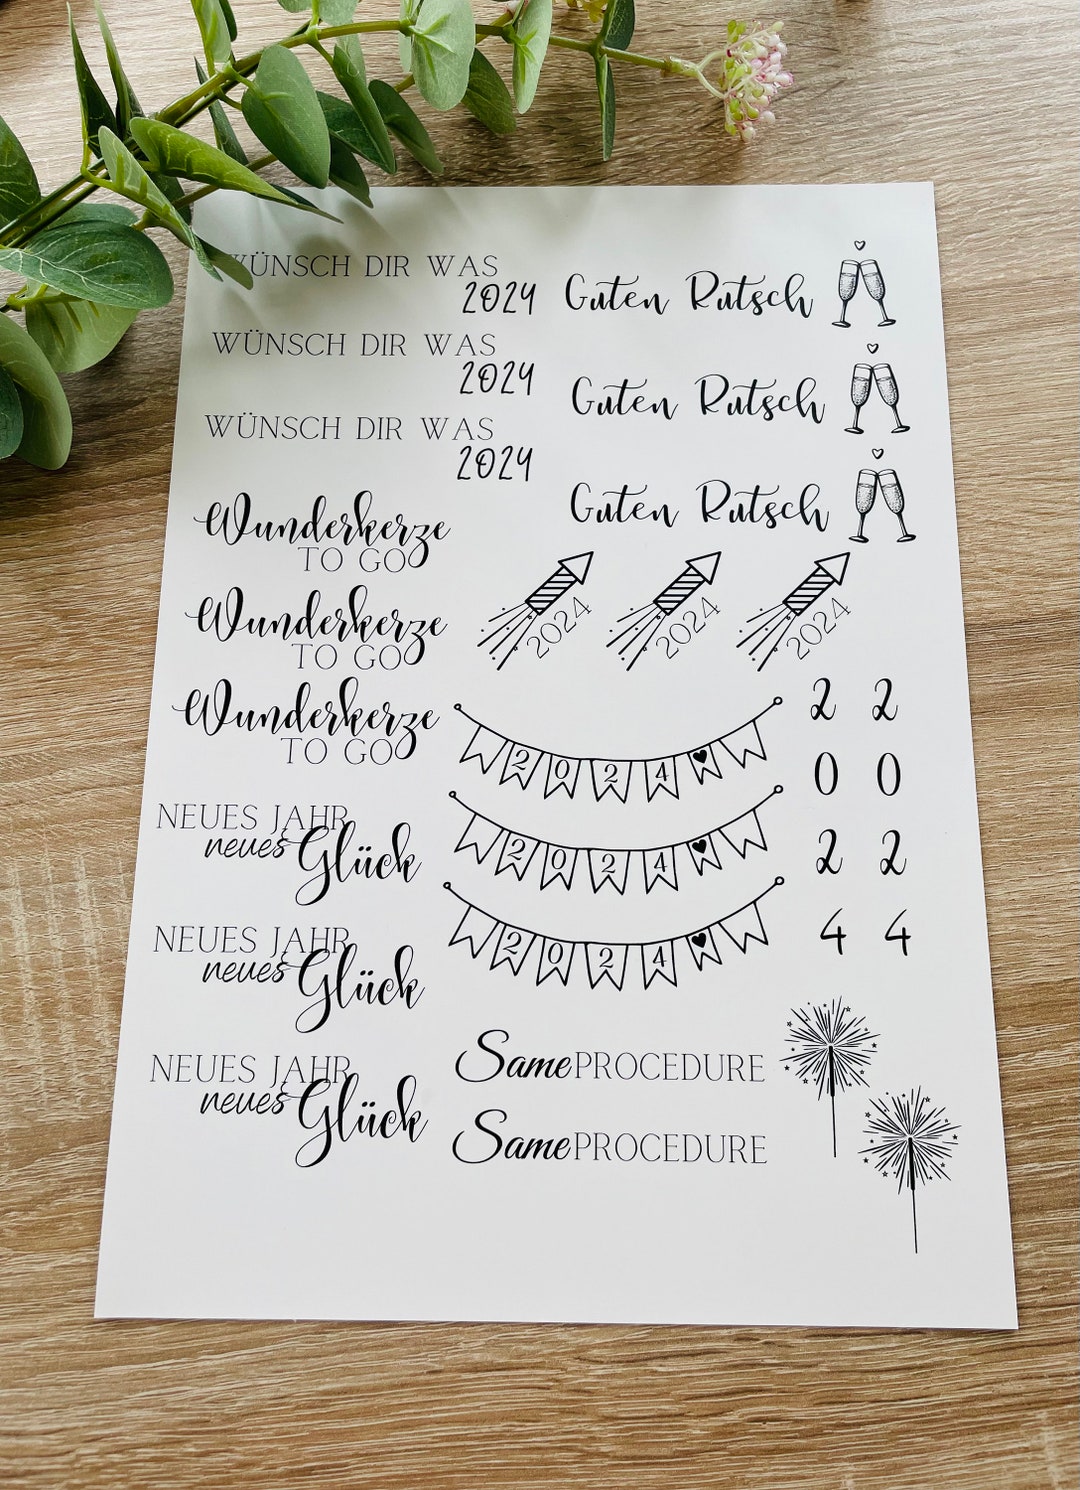 WÜNSCH DIR WAS
2024
WÜNSCH DIR WAS
2024
WÜNSCH DIR WAS
2024
Wunderkerze
TO GO
Wunderkerze
TO GO
Wunderkerze
TO GO
NEUES JAHR
neues Glück
NEUES JAHR
neues Glück
NEUES JAHR
neues Glück
Guten Rutsch
Guten Rutsch
Guten Rutsch
2024 2024 2024
2024
2024
2024
2 2
0 0
2 2
4 4
Same PROCEDURE
Same PROCEDURE